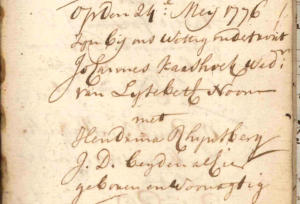 Op den 24e Meij 1776
zijn bij ons Wettig ondertrout
Johannes Kaashoek Wedr
van Lijsebeth Noom
met
Hendrina Rhijnsberg
J. D. beyden alhier
geboren en Woonagtig